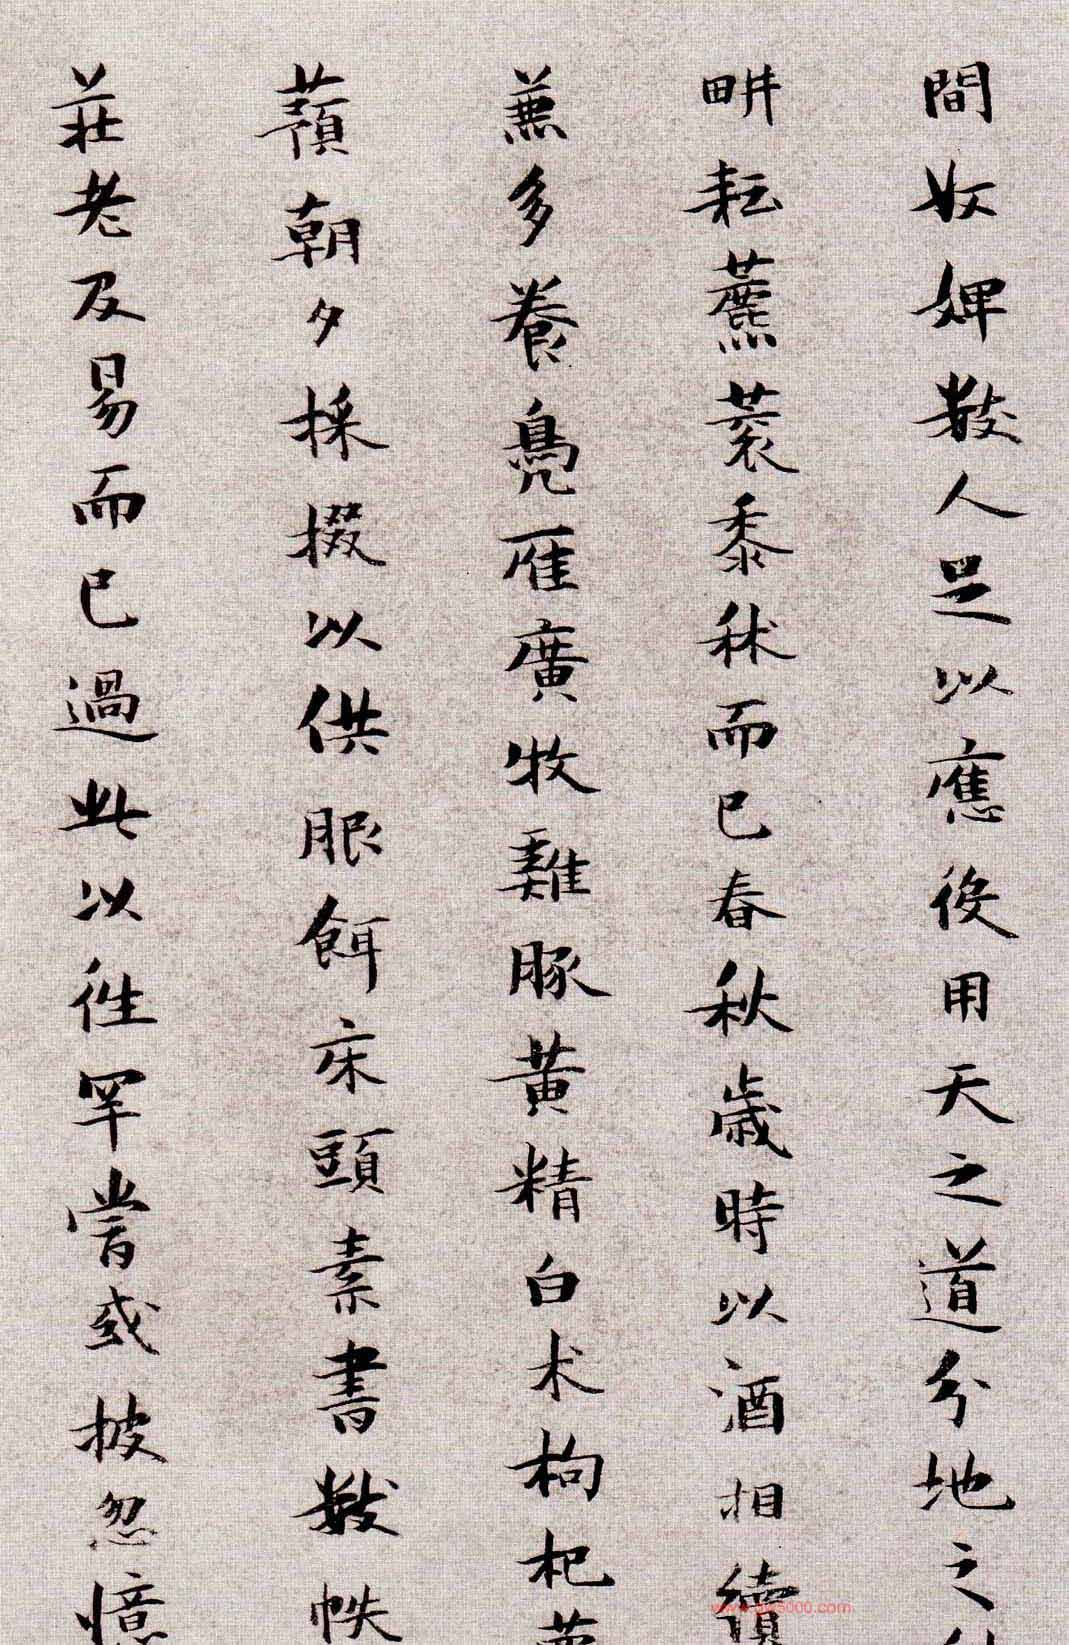 間奴婢數人足以應役用天之道分地之
畊耘藨蓘黍秫而已春秋歲時以酒相續
兼多養鳧雁廣牧雞豚黃精白术枸杞
蘋朝夕採掇以供服餌床頭素書數帙
莊老及易而已過此以往罕嘗或披忽憶
www.9610000.com